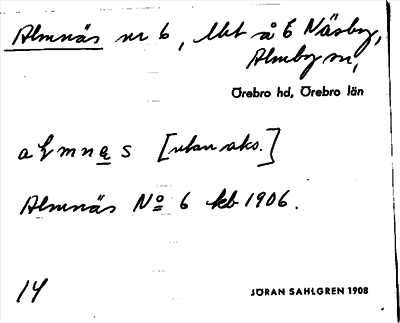 Almnäs nr 6, lht å E Näsby,
Almby sn,
Örebro hd, Örebro län
almnes [utan aks.]
Almnäs No 6 kb 1906.
14
JÖRAN SAHLGREN 1908